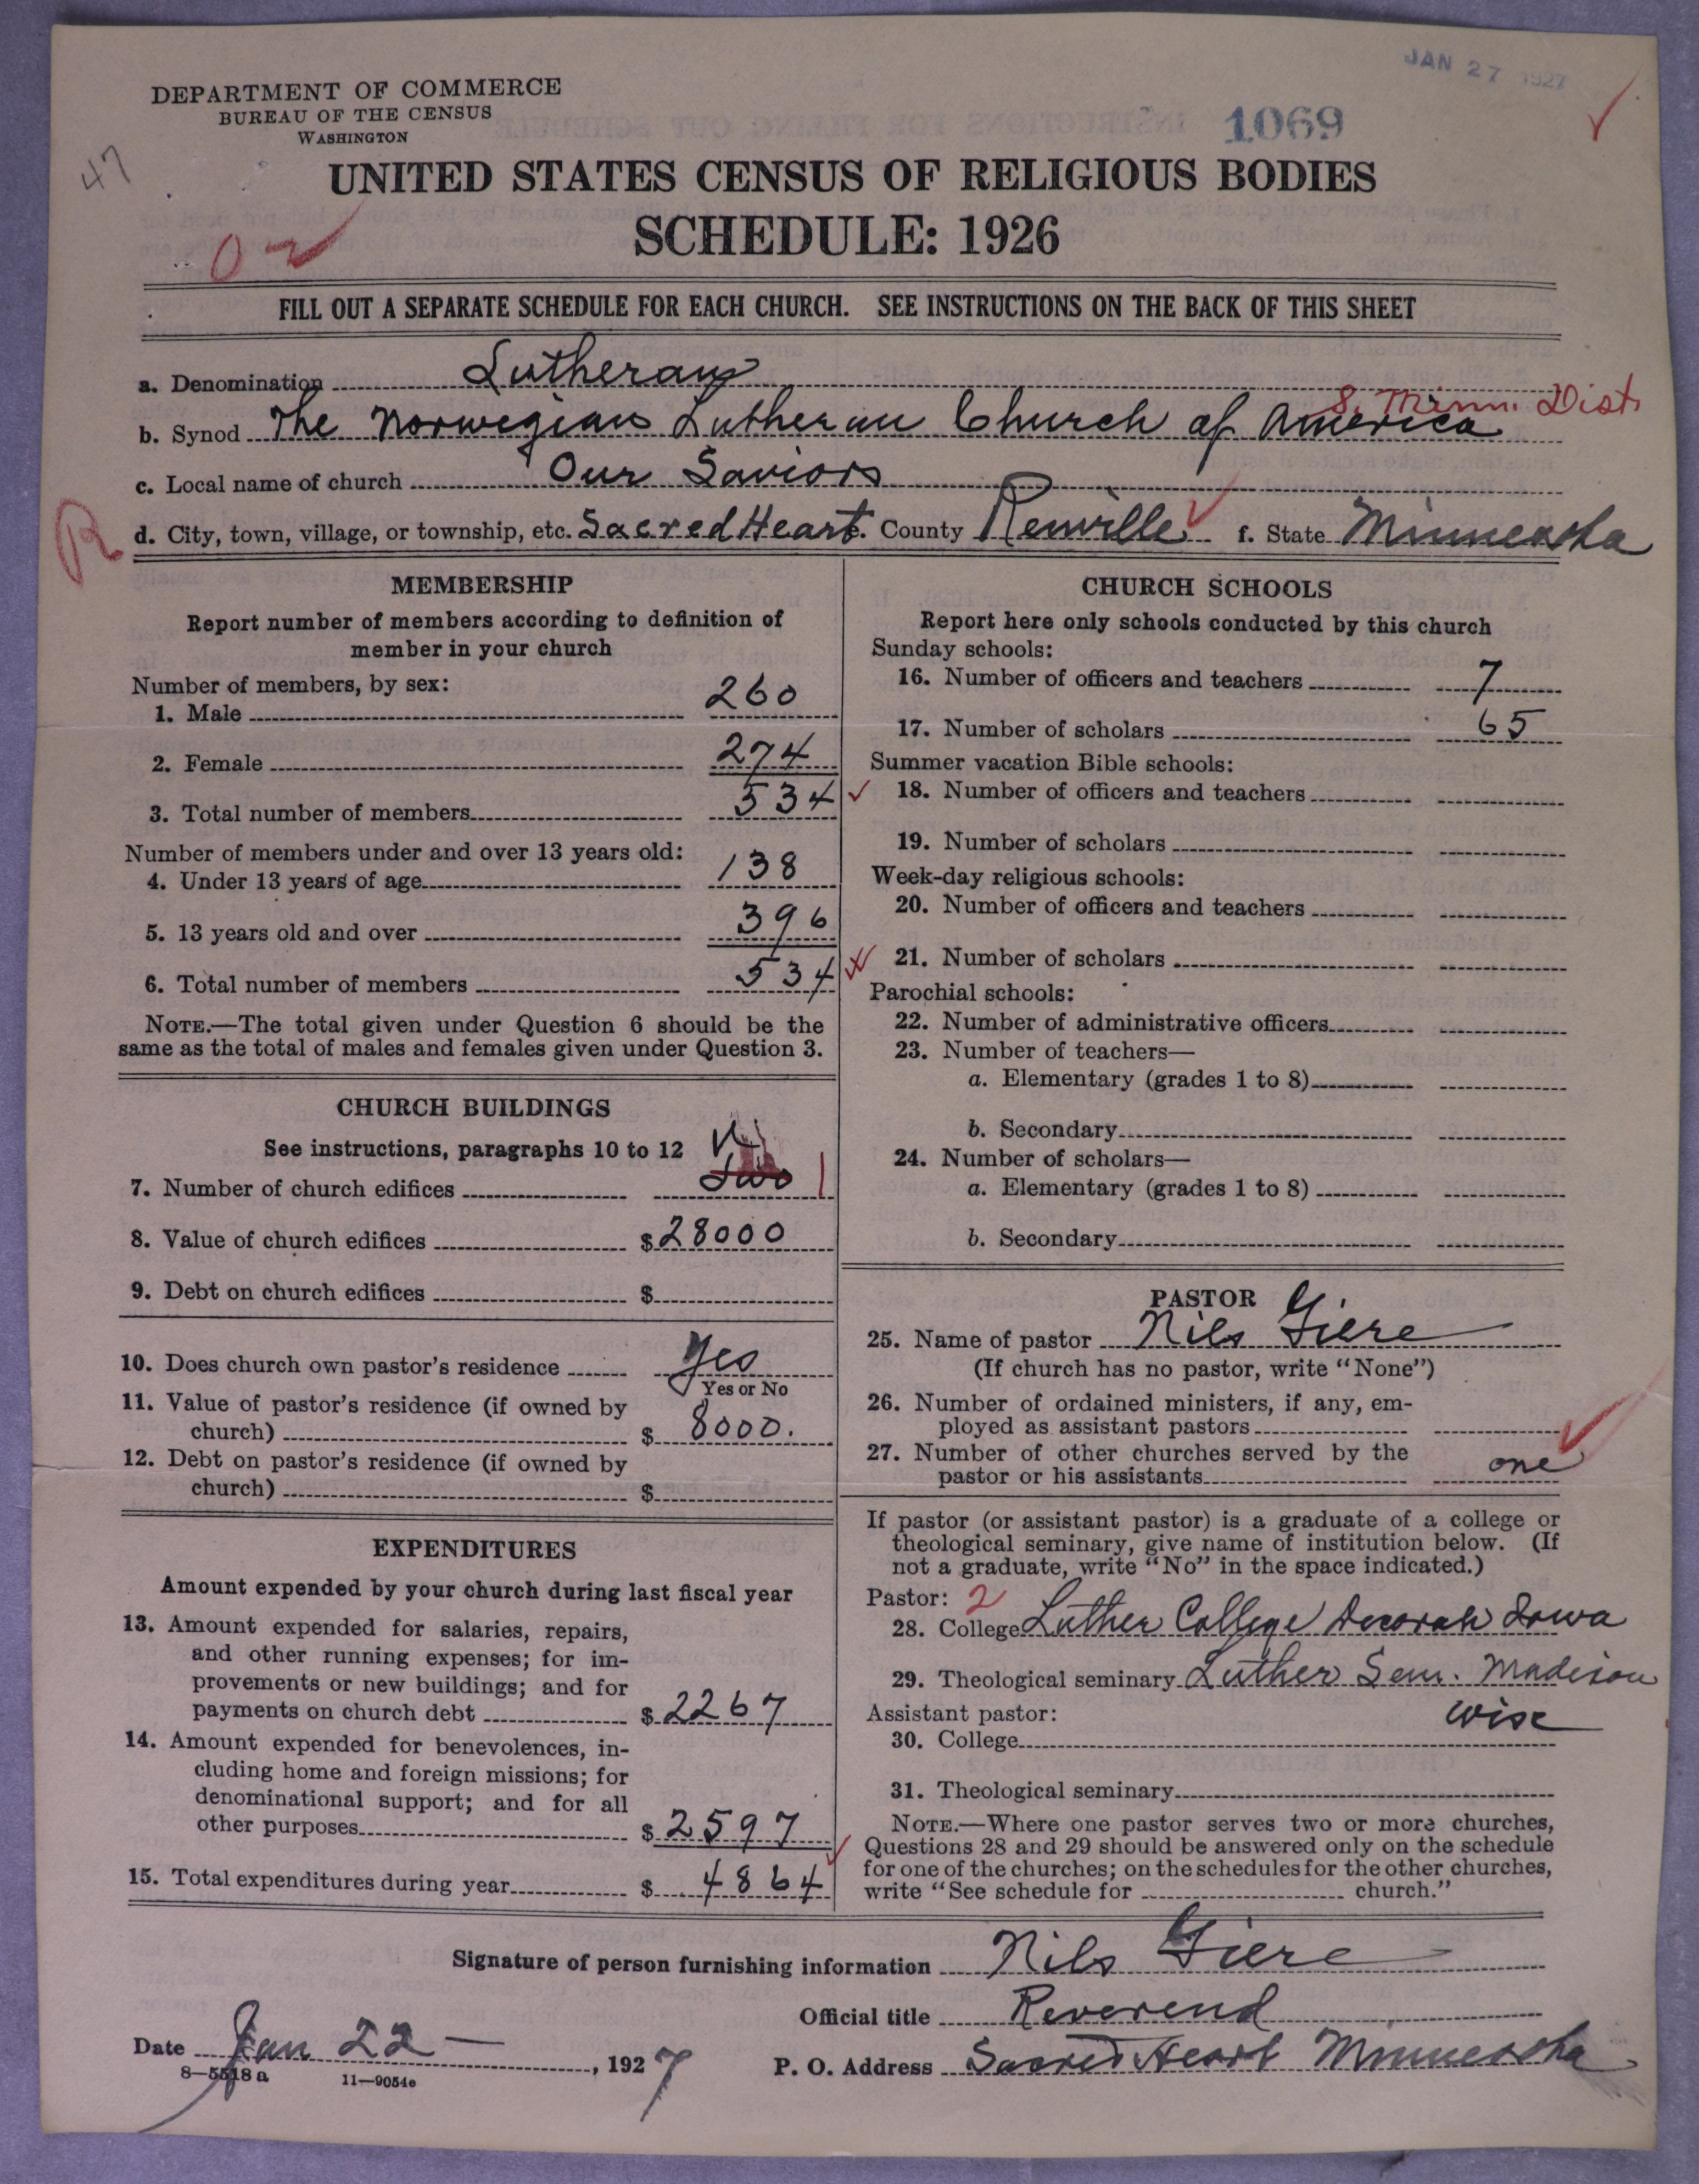 JAN 27 1927
DEPARTMENT OF COMMERCE
BUREAU OF THE CENSUS
WASHINGTON
1069
47
UNITED STATES CENSUS OF RELIGIOUS BODIES
SCHEDULE: 1926
FILL OUT A SEPARATE SCHEDULE FOR EACH CHURCH. SEE INSTRUCTIONS ON THE BACK OF THIS SHEET
a. Denomination Lutheran
S. Minn. Dist.
b. Synod The Norwegian Lutheran Church of America
c. Local name of church Our Saviors
R
d. City, town, village, or township, etc. Sacred Heart e. County Renville f. State Minnesota
MEMBERSHIP
Report number of members according to definition of
member in your church
Number of members, by sex:
1. Male 260
2. Female 274
3. Total number of members 534
Number of members under and over 13 years old:
4. Under 13 years of age 138
5. 13 years old and over 396
6. Total number of members 534
NOTE.—The total given under Question 6 should be the
same as the total of males and females given under Question 3.
CHURCH BUILDINGS
See instructions, paragraphs 10 to 12
7. Number of church edifices two 1
8. Value of church edifices $ 28000
9. Debt on church edifices $
10. Does church own pastor's residence Yes
Yes or No
11. Value of pastor's residence (if owned by
church) $ 8000.
12. Debt on pastor's residence (if owned by
church) $
EXPENDITURES
Amount expended by your church during last fiscal year
13. Amount expended for salaries, repairs,
and other running expenses; for im-
provements or new buildings; and for
payments on church debt $ 2267
14. Amount expended for benevolences, in-
cluding home and foreign missions; for
denominational support; and for all
other purposes $ 2597
15. Total expenditures during year $ 4864
CHURCH SCHOOLS
Report here only schools conducted by this church
Sunday schools:
16. Number of officers and teachers 7
17. Number of scholars 65
Summer vacation Bible schools:
18. Number of officers and teachers
19. Number of scholars
Week-day religious schools:
20. Number of officers and teachers
21. Number of scholars
Parochial schools:
22. Number of administrative officers
23. Number of teachers—
a. Elementary (grades 1 to 8)
b. Secondary
24. Number of scholars—
a. Elementary (grades 1 to 8)
b. Secondary
PASTOR
25. Name of pastor Nils Giere
(If church has no pastor, write "None")
26. Number of ordained ministers, if any, em-
ployed as assistant pastors
27. Number of other churches served by the
pastor or his assistants one
If pastor (or assistant pastor) is a graduate of a college or
theological seminary, give name of institution below. (If
not a graduate, write "No" in the space indicated.)
Pastor: 2
28. College Luther College Decorah Iowa
29. Theological seminary Luther Sem. Madison
Wisc
Assistant pastor:
30. College
31. Theological seminary
NOTE.—Where one pastor serves two or more churches,
Questions 28 and 29 should be answered only on the schedule
for one of the churches; on the schedules for the other churches,
write "See schedule for church."
Signature of person furnishing information Nils Giere
Official title Reverend
Date Jan 22 — , 1927
P. O. Address Sacred Heart Minnesota
8—5518a 11—9054c